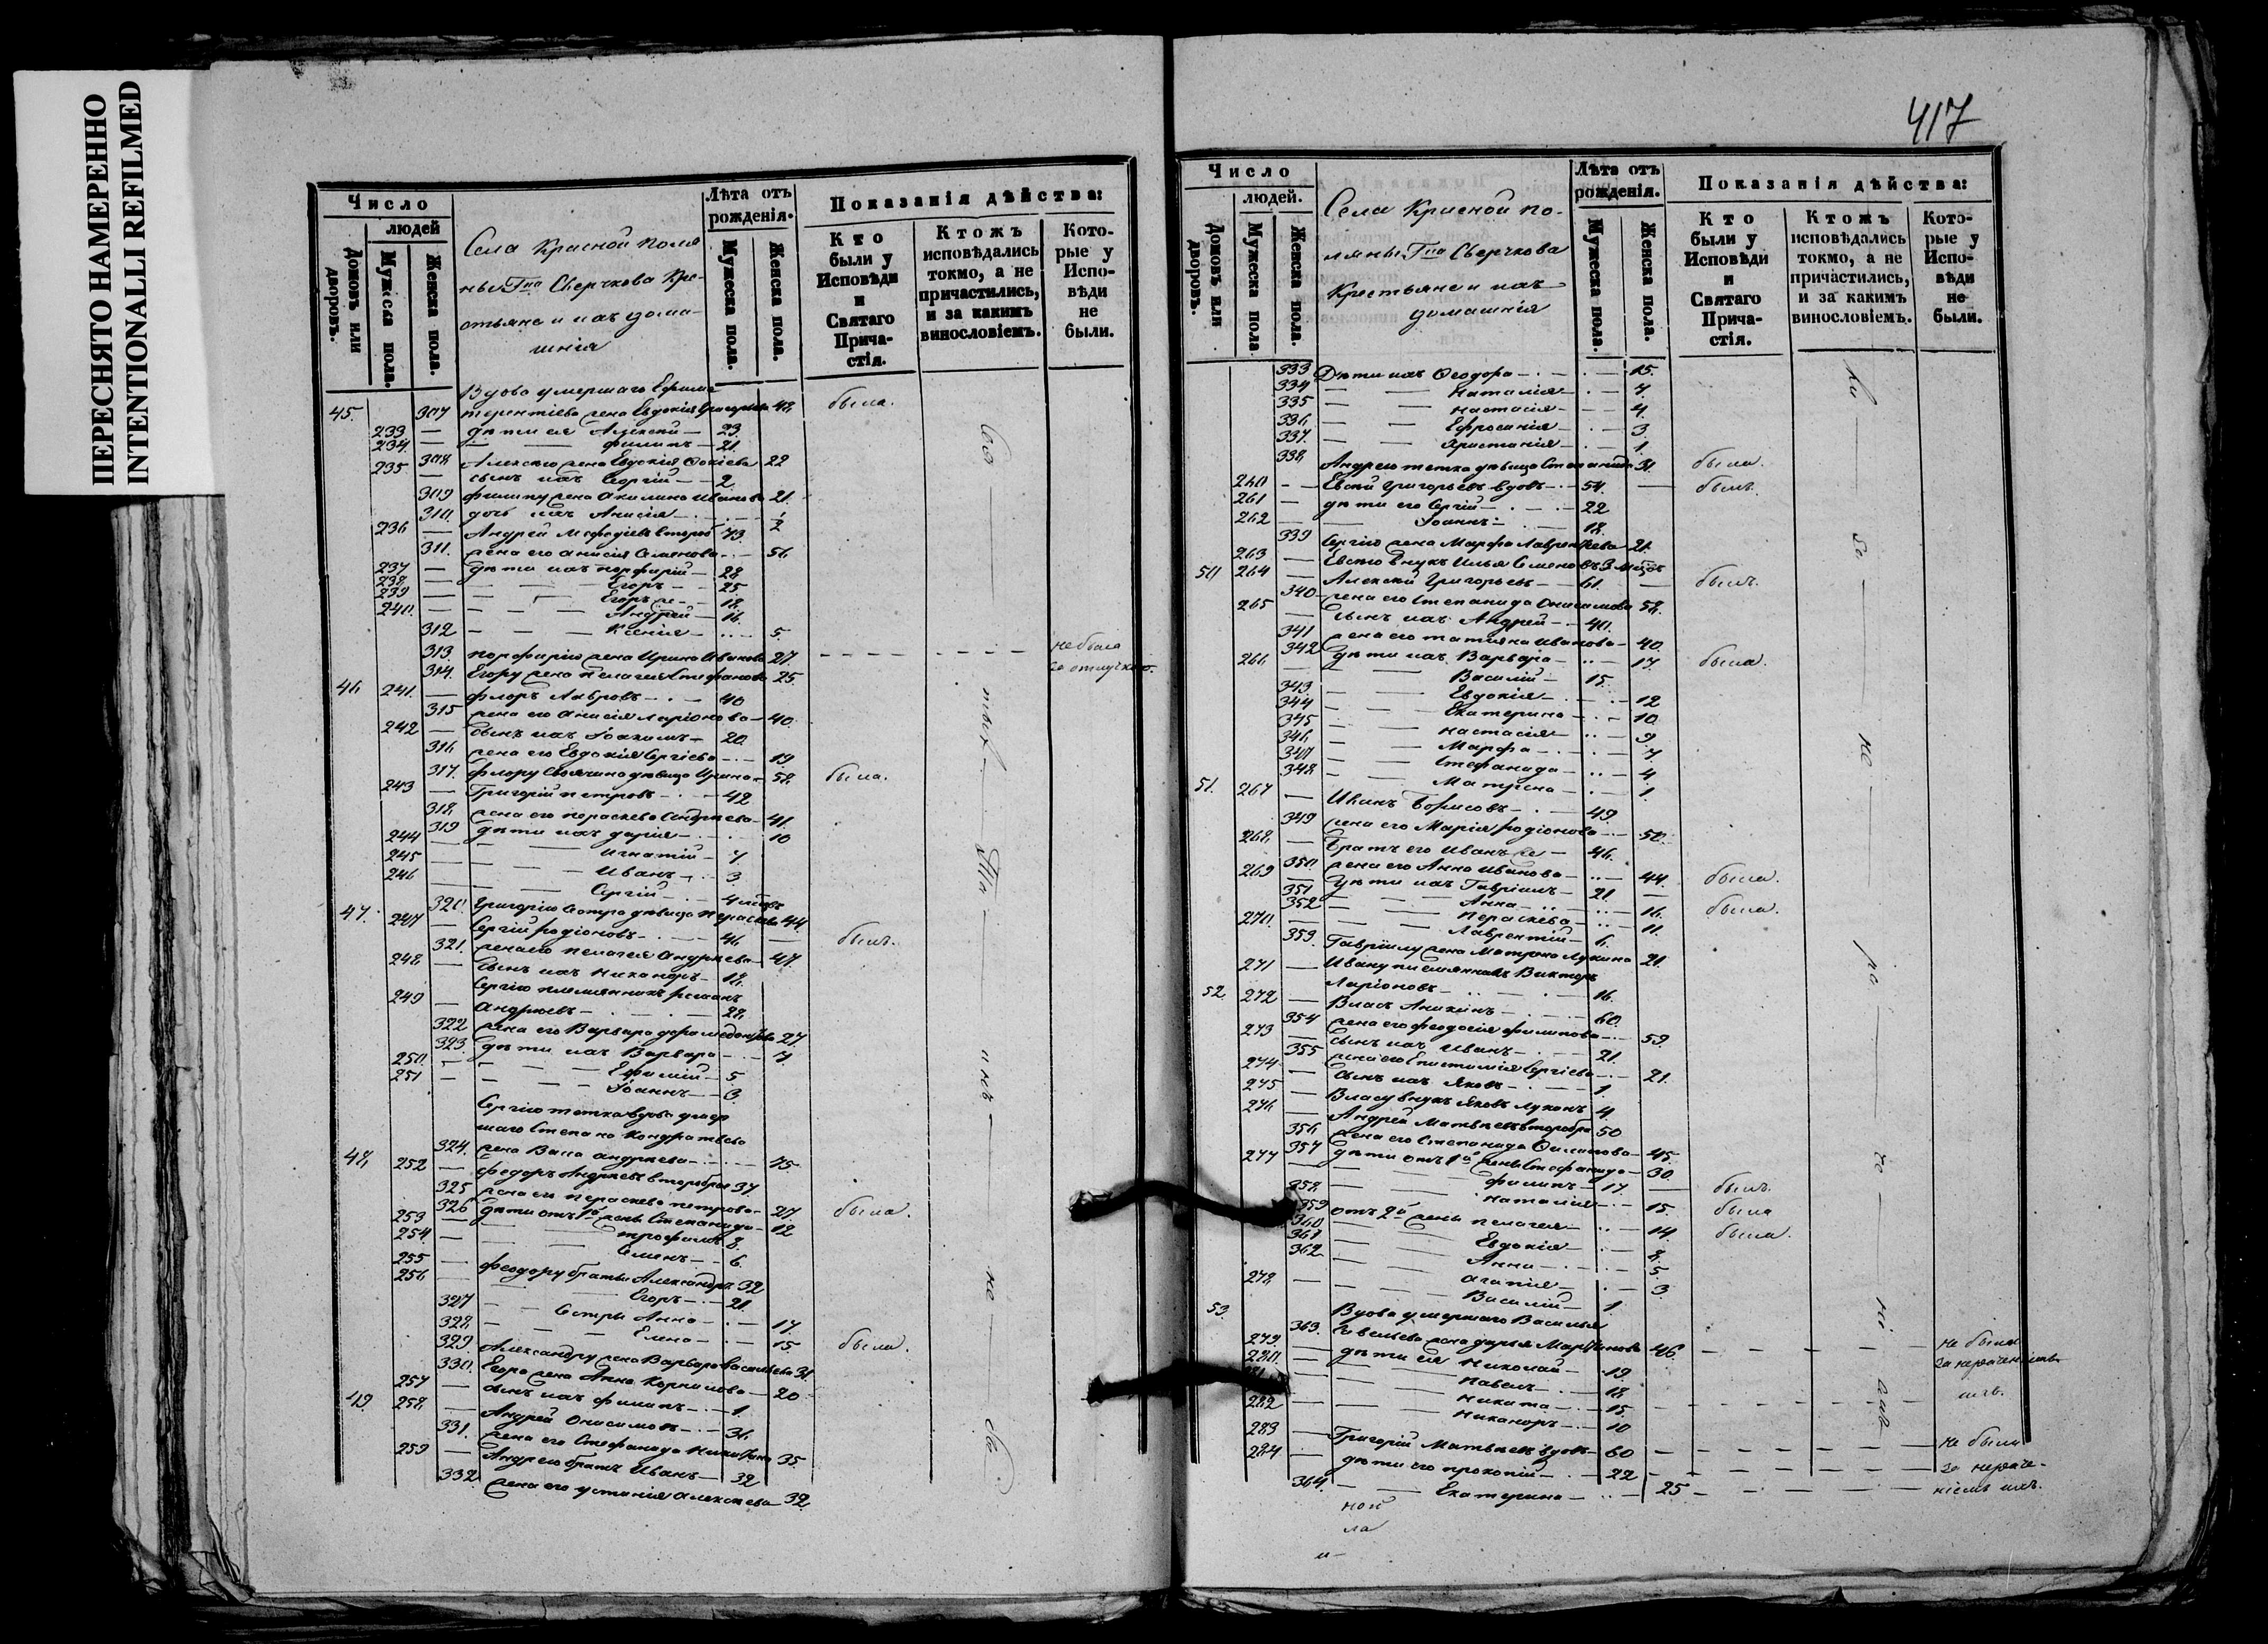 ПЕРЕСНЯТО НАМЕРЕННО
INTENTIONALLI REFILMED
417
Число
людей
Домовъ или дворовъ.
Мужеска пола.
Женска пола.
Села Красной поля
ны Гна Сверчкова Кре-
стьяне и ихъ дома-
шнія
Лѣта отъ рожденія.
Мужеска пола.
Женска пола.
Показанія дѣйства:
Кто были у Исповѣди и Святаго Прича-стія.
Ктожъ исповѣдались токмо, а не причастились, и за какимъ винословіемъ.
Кото-рые у Испо-вѣди не были.
Вдова умершаго Ефима
45. 307 терентіева жена Евдокія Григорьева 48 была.
233 — дѣти ея Алексѣй — 23
234 — — филипъ — 21.
308 Алексѣю жена Евдокія 22
235 — сынъ ихъ Георгій — 2
309 филипу жена Акилина Иванова 21.
310. дочь ихъ Анисія —
236 — Андрей Мефодіевъ второй 73
311. жена его Анисія Семенова — 56
237 — дѣти ихъ порфирій — 28
238 — — Егоръ — 25
239 — — Егоръ же — 18
240. — — Андрей — 16.
312 — — Ксенія — 5.
313. порфирію жена Ирина Иванова 27. не была
314. Егору жена пелагея Стефанова 25. за отлучкою.
46 241. — флоръ Лавровъ — 40
315 жена его Анисія Ларіонова — 40.
242 — сынъ ихъ Іоакимъ — 20
316 жена его Евдокія Сергіева — 19
317. флору своячина дѣвица Ирина — 58 была.
243 — Григорій петровъ — 42
318. жена его параскева Андреева — 41.
319 дѣти ихъ дарія — 10
244 — — Игнатій — 7.
245 — — Иванъ — 3
246 — — Сергій — 4
320. Григорію сестра дѣвица параскева 44
47. 247 — Сергій родіоновъ — 46 былъ.
321. жена его пелагея Андреева — 47.
248 — сынъ ихъ Никаноръ — 18.
Сергію племянникъ романъ
249 — Андреевъ — 28.
322 жена его Варвара 27.
323 дѣти ихъ Варвара — 7.
250. — — Ефимій — 5
251 — — Іоаннъ — 3.
Сергію тетка вдова умер
шаго Степана Кондратьева
324. жена Васса Андреева — 75.
48 252 — федоръ Андреевъ второбрач 37.
325 жена его параскева петрова — 27 была.
326 дѣти отъ 1й жены Степанида — 12
253 — — трофимъ 8.
254 — — Семенъ — 6.
255 — феодору братья Александръ 32
256 — — Егоръ — 21.
327 — — Сестры Анна — 17.
328. — — Елена — 15 была.
329. Александру жена Варвара Васильева 31
330. Егора жена Анна Корнилова — 20
257 — сынъ ихъ филипъ — 1.
49 258. — Андрей Онисимовъ — 36.
331. жена его Стефанида Никитина 35.
259 — Андрею братъ Иванъ — 32
332. жена его устинія Алексѣева 32
Число
людей.
Домовъ или дворовъ.
Мужеска пола
Женска пола.
Села Красной по-
ляны Гна Сверчкова
Крестьяне и ихъ
домашнія
Лѣта отъ рожденія.
Мужеска пола.
Женска пола.
Показанія дѣйства:
Кто были у Исповѣди и Святаго Прича-стія.
Ктожъ исповѣдались токмо, а не причастились, и за какимъ винословіемъ.
Кото-рые у Испо-вѣди не были.
333 Дѣти ихъ Феодора — 15.
334 — — Наталія — 7.
335 — — Настасія — 4.
336. — — Ефросинія — 3
337. — — Христинія — 1.
338. Андрею тетка дѣвица Степанида 31. была.
260 — Евсей Григорьевъ вдовъ — 54. былъ.
261 — дѣти его Сергій — 22
262 — — Іоаннъ — 18.
339 Сергію жена Марфа Лаврентьева 21.
263 — Евсею внукъ Илья Семеновъ 3 мѣсяц
50 264 — Алексѣй Григорьевъ — 61. былъ.
340 жена его Степанида Онисимова 58.
265 — сынъ ихъ Андрей — 40.
341 жена его татьяна Иванова — 40.
342 дѣти ихъ Варвара — 17. была.
266 — — Василій — 15.
343. — — Евдокія — 12
344 — — Екатерина — 10
345 — — Настасія — 9
346. — — Марфа — 7
347 — — Стефанида — 4
348. — — Матрена — 1.
51. 267 — Иванъ Борисовъ — 49.
349 жена его Марія родіонова — 50.
268. — Братъ его Иванъ же — 46.
350 жена его Анна Иванова — 44. была.
269 — дѣти ихъ Гавріилъ — 21
351 — — Анна — 16. была.
352 — — параскева — 11.
270. — — Лаврентій — 6.
353. Гавріилу жена Матрона Лукина 21
271 — Ивану племянникъ Викторъ
Ларіоновъ — 16.
52. 272 — Власъ Аникинъ — 60.
354 жена его феодосія филипова — 59.
273 — сынъ ихъ Иванъ — 21.
355 жена его Епистимія Сергіева — 21.
274 — сынъ ихъ Яковъ — 1.
275 — Власу внукъ Яковъ Лукинъ 4
276. — Андрей Матвѣевъ второбр 50
356. жена его Степанида 45.
357 дѣти отъ 1й жены Стефанида — 30.
277 — — филипъ — 17. былъ.
358. — — Наталія — 15. была
359 отъ 2й жены пелагея — 14. была.
360 — — Евдокія — 8.
361 — — Анна — 5.
362 — — Агапія — 3
278. — — Василій — 1
53. Вдова умершаго Василья
363. Савельева жена дарья Мартинова 46. не была
279 — дѣти ея Николай — 19. за нераченіемъ
280. — — Павелъ — 18. ихъ.
281 — — Никита — 15.
282 — — Никаноръ — 10
283 — Григорій Матвѣевъ вдовъ — 60 не были
284 — дѣти его прокопій — 22 за нераче-
364. — — Екатерина — 25 ніемъ ихъ.
ной
ла
и-